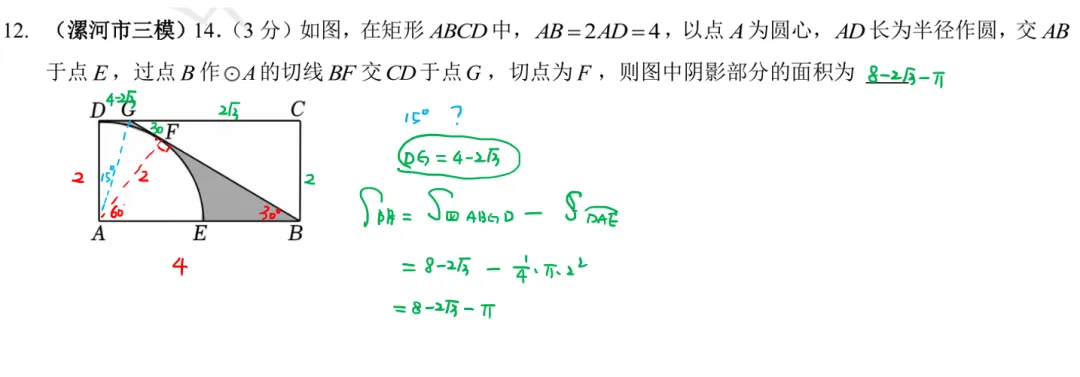 12. （漯河市三模）14.（3分）如图，在矩形ABCD中，AB=2AD=4，以点A为圆心，AD长为半径作圆，交AB
于点E，过点B作⊙A的切线BF交CD于点G，切点为F，则图中阴影部分的面积为 8-2√3-π
4-2√3
D G 2√3 C
30 F
15° ?
DG=4-2√3
2 15° 2 2
60° 30°
A E B
4
S阴 = S四ABGD - S扇DAE
= 8-2√3 - 1/4·π·2²
= 8-2√3-π